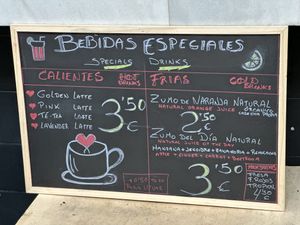 BEBIDAS ESPECIALES
SPECIALS DRINKS
CALIENTES HOT DRINKS
GOLDEN LATTE
PINK LATTE
TE-TEA LATTE
LAVENDER LATTE
3'50 €
FRIAS COLD DRINKS
ZUMO DE NARANJA NATURAL
NATURAL ORANGE JUICE
2'50 €
ZUMO DEL DÍA NATURAL
NATURAL JUICE OF THE DAY
MANZANA + JENGIBRE + ZANAHORIA + REMOLACHA
APPLE + GINGER + CARROT + BEETROOT
3'50 €
FRESA